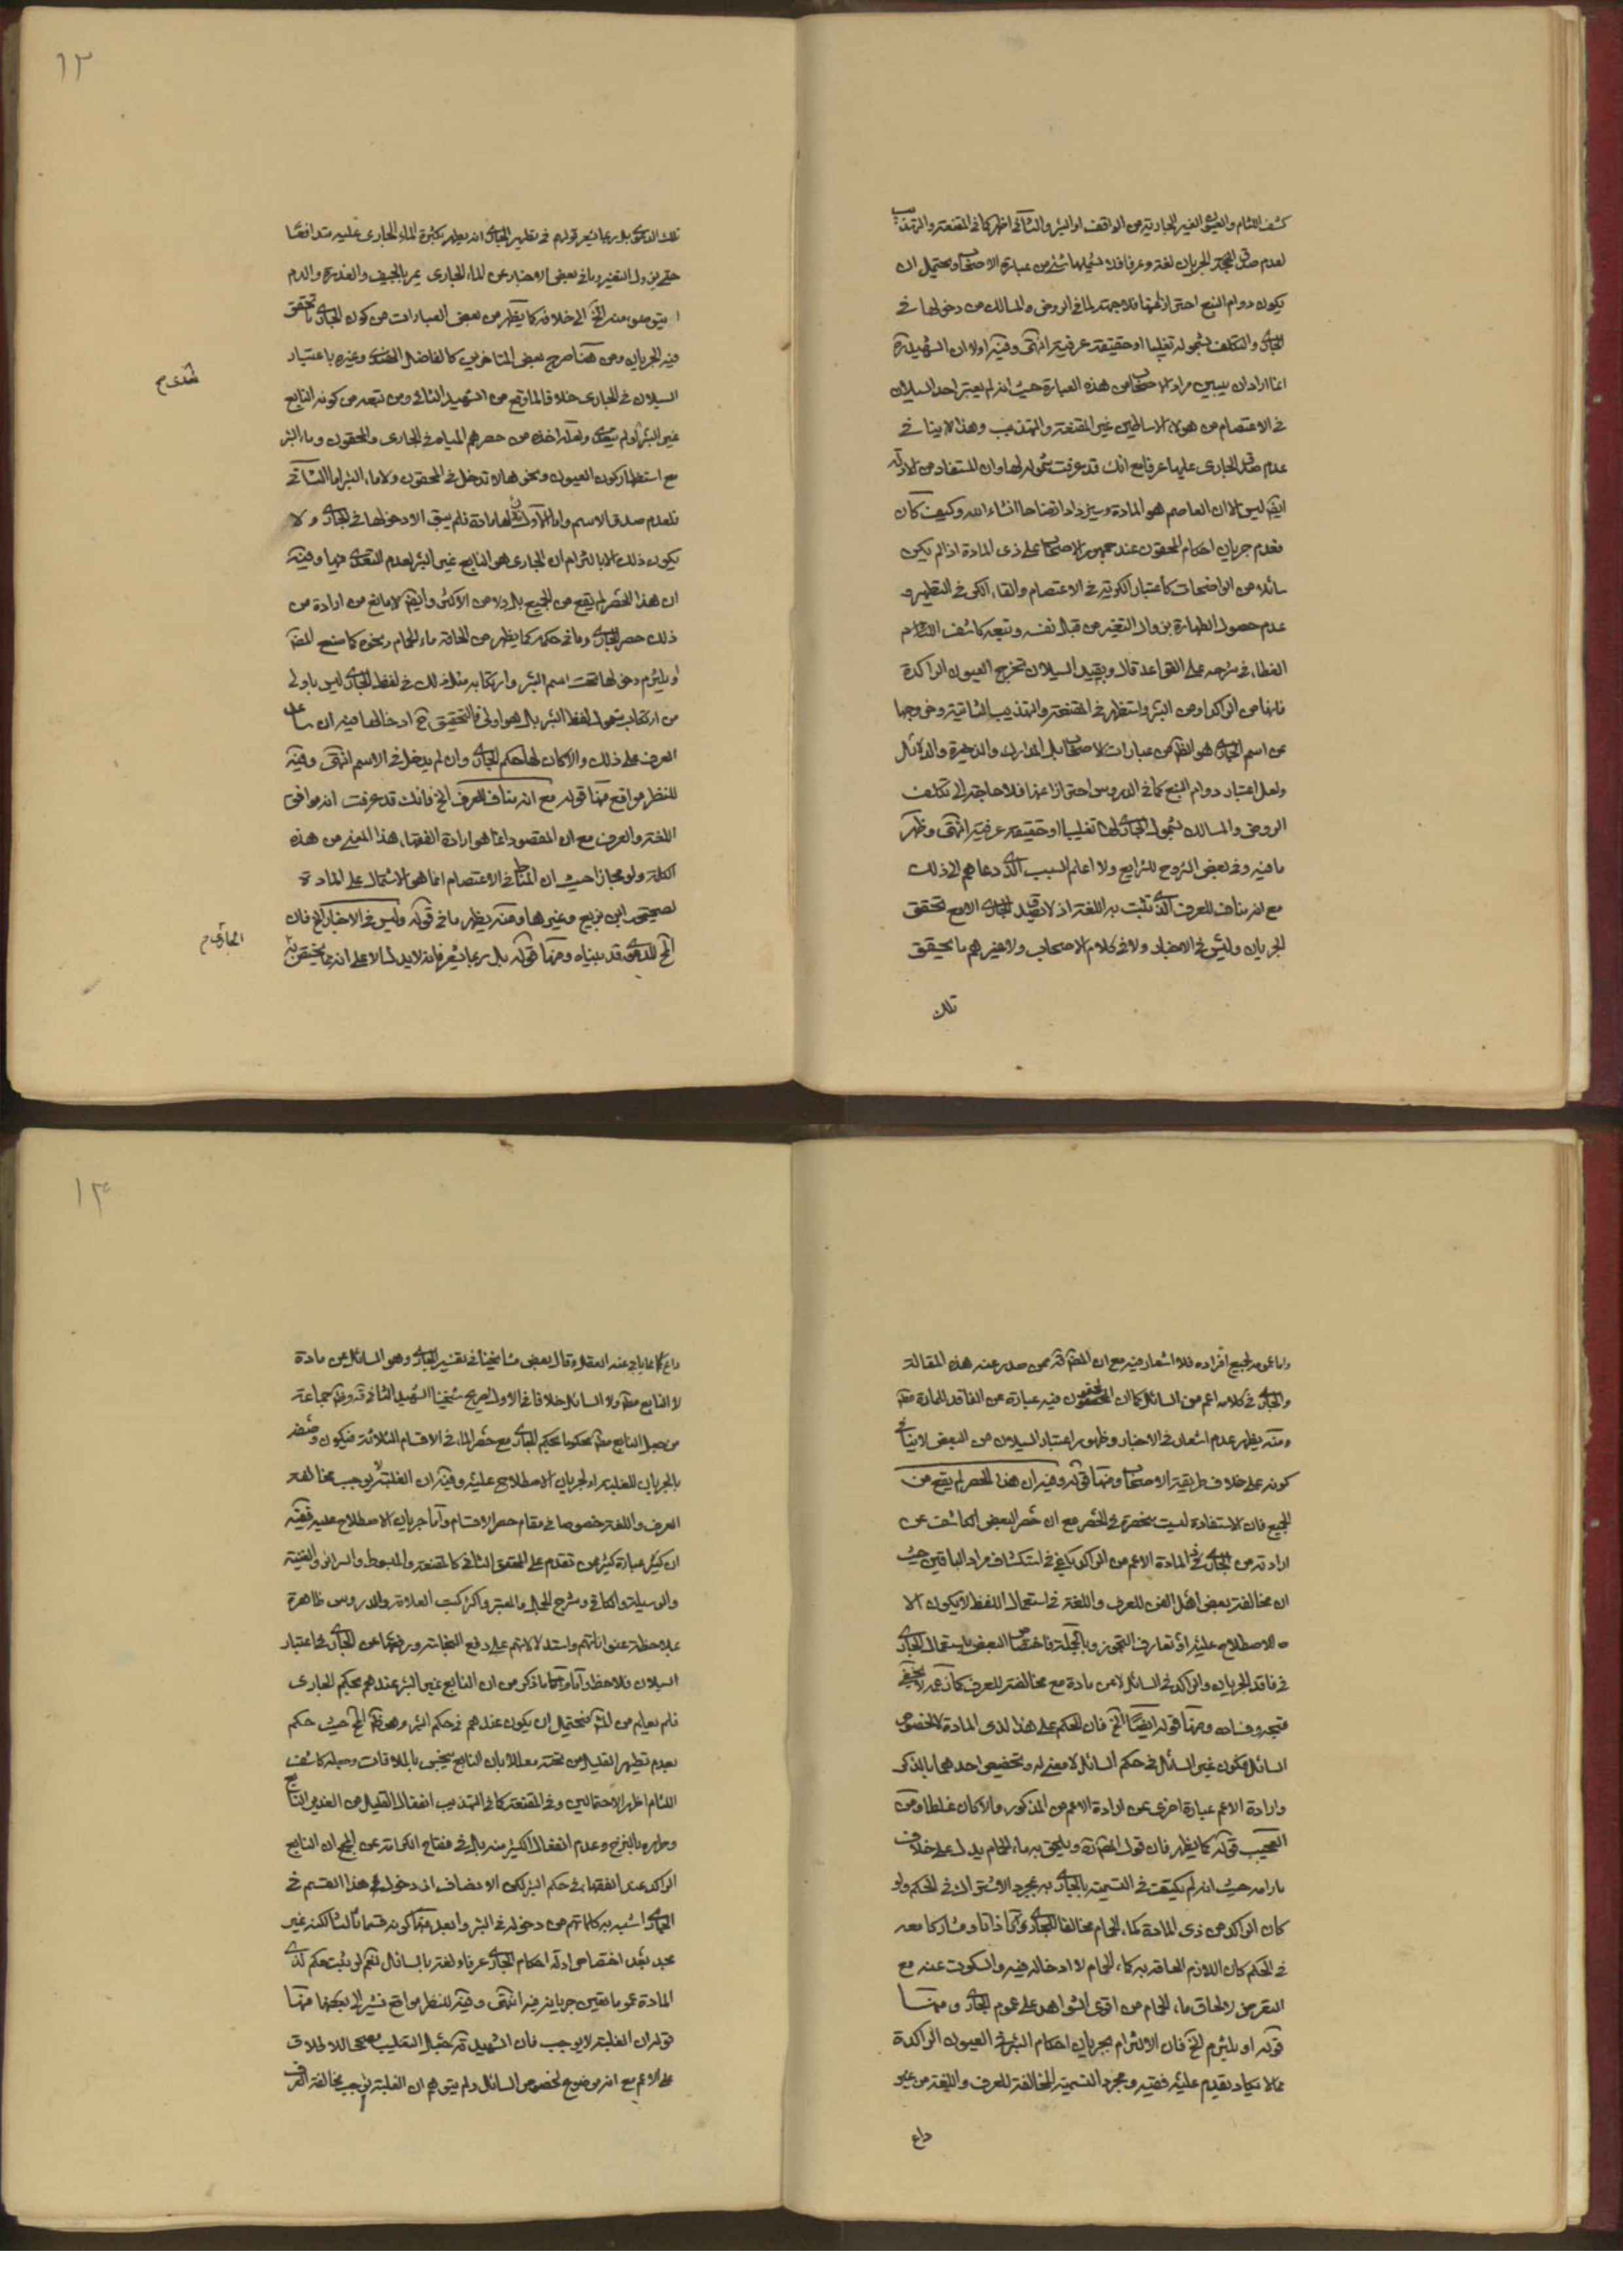 كشف اللثام والعيون الغير الجارية من الواقف او البئر والثاني اظهر كما في المقنعة والتهذيب
لعدم صدق الجريان لغة وعرفا فلا يشملها شئ من عبارة الاصحاب ويحتمل ان
يكون دوام النبع احترازا عنها فلا جهة لما في الروض والمسالك من دخولها في
الجاري والتكلف بشموله تغليبا او حقيقة عرفية انتهى وفيه اولا ان الشهيد ره
انما اراد ان يبين مراد الاصحاب من هذه العبارة حيث انه لم يعتبر احد السيلان
في الاعتصام من هؤلاء الاساطين غير المقنعة والتهذيب وهذا لا ينافي
عدم صدق الجاري عليها عرفا مع انك قد عرفت شموله لها وان المستفاد من الادلة
ايضا ليس الا ان العاصم هو المادة وسيزداد اتضاحا انشاء الله وكيف كان
فعدم جريان احكام المحقون عند جمهور الاصحاب على ذي المادة اذا لم يكن
سائلا من الواضحات كاعتبار الكرية في الاعتصام والقاء الكر في التطهير و
عدم حصول الطهارة بزوال التغير من قبل نفسه وتبعه كاشف اللثام
الغطاء في شرحه على القواعد قال وبقيد السيلان تخرج العيون الراكدة
فانها من الراكد او من البئر واستظهر في المقنعة والتهذيب الثانية وخروجها
عن اسم الجاري هو الظاهر من عبارات الاصحاب بل المدارك والذخيرة والدلائل
ولعل اعتبار دوام النبع كما في الدروس احترازا عنها فلا حاجة الى تكلف
الروض والمسالك بشمول الجاري لها تغليبا او حقيقة عرفية انتهى وظهر
ما فيه وفي بعض الشروح للشرايع ولا اعلم السبب الذي دعاهم الى ذلك
مع انه مناف للعرف الذي تثبت به اللغة اذ لا يصدق الجاري الا مع تحقق
الجريان وليس في الاخبار ولا في كلام الاصحاب ولا غيرهم ما يحقق
تلك
١٢
تلك الدعوى بل ربما يشعر قولهم في تطهير الجاري انه يطهر بكثرة الماء الجاري عليه متدافعا
حتى يزول التغير وما في بعض الاخبار عن الماء الجاري يمر بالجيف والعذرة والدم
ا يتوضؤ منه الخ الى خلافه كما يظهر من بعض العبارات من كون الجاري ما تحقق
فيه الجريان ومن هنا صرح بعض المتاخرين كالفاضل الهندي وغيره باعتبار
السيلان في الجاري خلافا لما وقع من الشهيد الثاني ومن تبعه من كونه النابع
غير البئر او لم يتعد ولعله اخذه من حصرهم المياه في الجاري والمحقون وماء البئر
مع استظهار كون العيون ونحوها لا تدخل في المحقون ولا ماء البئر اما الثاني
فلعدم صدق الاسم واما الاول فلان لها مادة فلم يبق الا دخولها في الجاري ولا
يكون ذلك الا بالتزام ان الجاري هو النابع غير البئر لعدم التعدي فيها وفيه
ان هذا الحصر لم يقع من الجميع بل ولا من الاكثر وايضا لا مانع من ارادة من
ذلك حصر الجاري وما في حكمه كما يظهر من الحاقه ماء الحمام ونحوه كما صنع المصنف
او يلتزم دخولها تحت اسم البئر وارتكابه مثل ذلك في لفظ الجاري ليس باولى
من ارتكاب شمول لفظ البئر بل هو اولى فالتحقيق ح ادخالها فيه ان ساعد
العرف على ذلك والا كان لها حكم الجاري وان لم يدخل في الاسم انتهى وفيه
للنظر مواقع منها قوله مع انه مناف للعرف الخ فانك قد عرفت انه موافق
اللغة والعرف مع ان المقصود انما هو ارادة الفقهاء هذا المعنى من هذه
الكلمة ولو مجازا حيث ان المناط في الاعتصام انما هو الاشتمال على المادة
لصحيحة ابن بزيع وغيرها ومنه يظهر ما في قوله وليس في الاخبار الخ فان
الخ الدعوى قد بيناه ومنها قوله بل ربما يشعر فانه لا يدل الا على انه مما يختص به
الهندي م
الجاري م
واما عمومه لجميع افراده فلا اشعار فيه مع ان المصنف قده ممن صدر عنه هذه المقالة
والجاري في كلامه اعم من السائل كما ان المحقون فيه عبارة عن الفاقد للمادة
ومنه يظهر عدم اشعار في الاخبار وظهور اعتبار السيلان من البعض لا ينافي
كونه على خلاف طريقة الاصحاب ومنها قوله وفيه ان هذا الحصر لم يقع من
الجميع فان الاستفادة ليست منحصرة في الحصر مع ان حصر البعض الكاشف عن
ارادته من الجاري ذي المادة الاعم من الراكد كاف في استكشاف مراد الباقين حيث
ان مخالفة بعض اهل الفن للعرف واللغة في استعمال اللفظ لا يكون الا
ه للاصطلاح عليه او تعارف التجوز وبالجملة فاختصاص البعض باستعمال الجاري
في فاقد الجريان والراكد في السائل لا عن مادة مع مخالفته للعرف كما زعمه لا يخفى
قبحه وفساده ومنها قوله ايضا الخ فان الحكم على هذا لذي المادة لا لخصوص
السائل فكون غير السائل في حكم السائل لا معنى له وتخصيص احدهما بالذكر
وارادة الاعم عبارة اخرى عن ارادة الاعم من المذكور والا كان غلطا ومن
العجيب قوله كما يظهر فان قول المصنف قده ويلحق به ماء الحمام يدل على خلاف
ما رامه حيث انه لم يكتف في التسمية بالجاري به بمجرد الاشتراك في الحكم ولو
كان الراكد من ذي المادة كماء الحمام مخالفا للجاري ذاتا ومشاركا معه
في الحكم كان اللازم الحاقه به كماء الحمام لا ادخاله فيه والسكوت عنه مع
التعرض لالحاق ماء الحمام من اقوى الشواهد على عموم الجاري ومنها
قوله او يلتزم الخ فان الالتزام بجريان احكام البئر في العيون الراكدة
مما لا يكاد يقدم عليه فقيه ومجرد التسمية المخالفة للعرف واللغة من غير
داع
١٣
داع كما يأباه عنه العقلاء وقال بعض مشايخنا في تفسير الجاري وهو السائل عن مادة
لا النابع مطلقا ولا السائل خلافا في الاول لصريح شيخنا الشهيد الثاني قده وظاهر جماعة
من جعل النابع مطلقا محكوما بحكم الجاري مع حصر الماء في الاقسام الثلاثة فيكون وصفه
بالجريان للغلبة او لجريان الاصطلاح عليه وفيه ان الغلبة لا يوجب مخالفة
العرف واللغة خصوصا في مقام حصر الاقسام واما جريان الاصطلاح عليه ففيه
ان كثير عبارة كثير ممن تقدم على المحقق الثاني كالمقنعة والمبسوط والسرائر والغنية
والوسيلة والكافي وشرح الجمل والمعتبر واكثر كتب العلامة والدروس ظاهرة
بملاحظة عنواناتهم واستدلالاتهم على دفع النجاسة ورفعها عن الجاري في اعتبار
السيلان فلاحظ واما ما ذكر من ان النابع غير البئر عندهم بحكم الجاري
فلم يعلم من الكل فيحتمل ان يكون عندهم في حكم البئر وهو ظاهر الخ حيث حكم
بعدم تطهير القليل من تحته معللا بان النابع ينجس بالملاقات وجعله كاشف
اللثام اظهر الاحتمالين وفي المقنعة كما في التهذيب انفعال القليل من الغدير النابع
وطهره بالنزح وعدم انفعال الكثير منه بل في مفتاح الكرامة عن الخ ان النابع
الراكد عند الفقهاء في حكم البئر لكن الانصاف ان دخول هذا القسم في
الجاري اشبه بكلماتهم من دخوله في البئر وابعد منهما كونه قسما ثالثا لكنه غير
بعيد بعد اختصاص ادلة احكام الجاري عرفا ولغة بالسائل نعم لو ثبت حكم لذي
المادة عموما تعين جريانه فيه انتهى وفيه للنظر مواقع نشير الى بعضها منها
قوله ان الغلبة لا يوجب فان الشهيد قده جعل التغليب مصححا للاطلاق
على الاعم مع انه موضوع لخصوص السائل ولم يتوهم ان الغلبة توجب مخالفة العرف